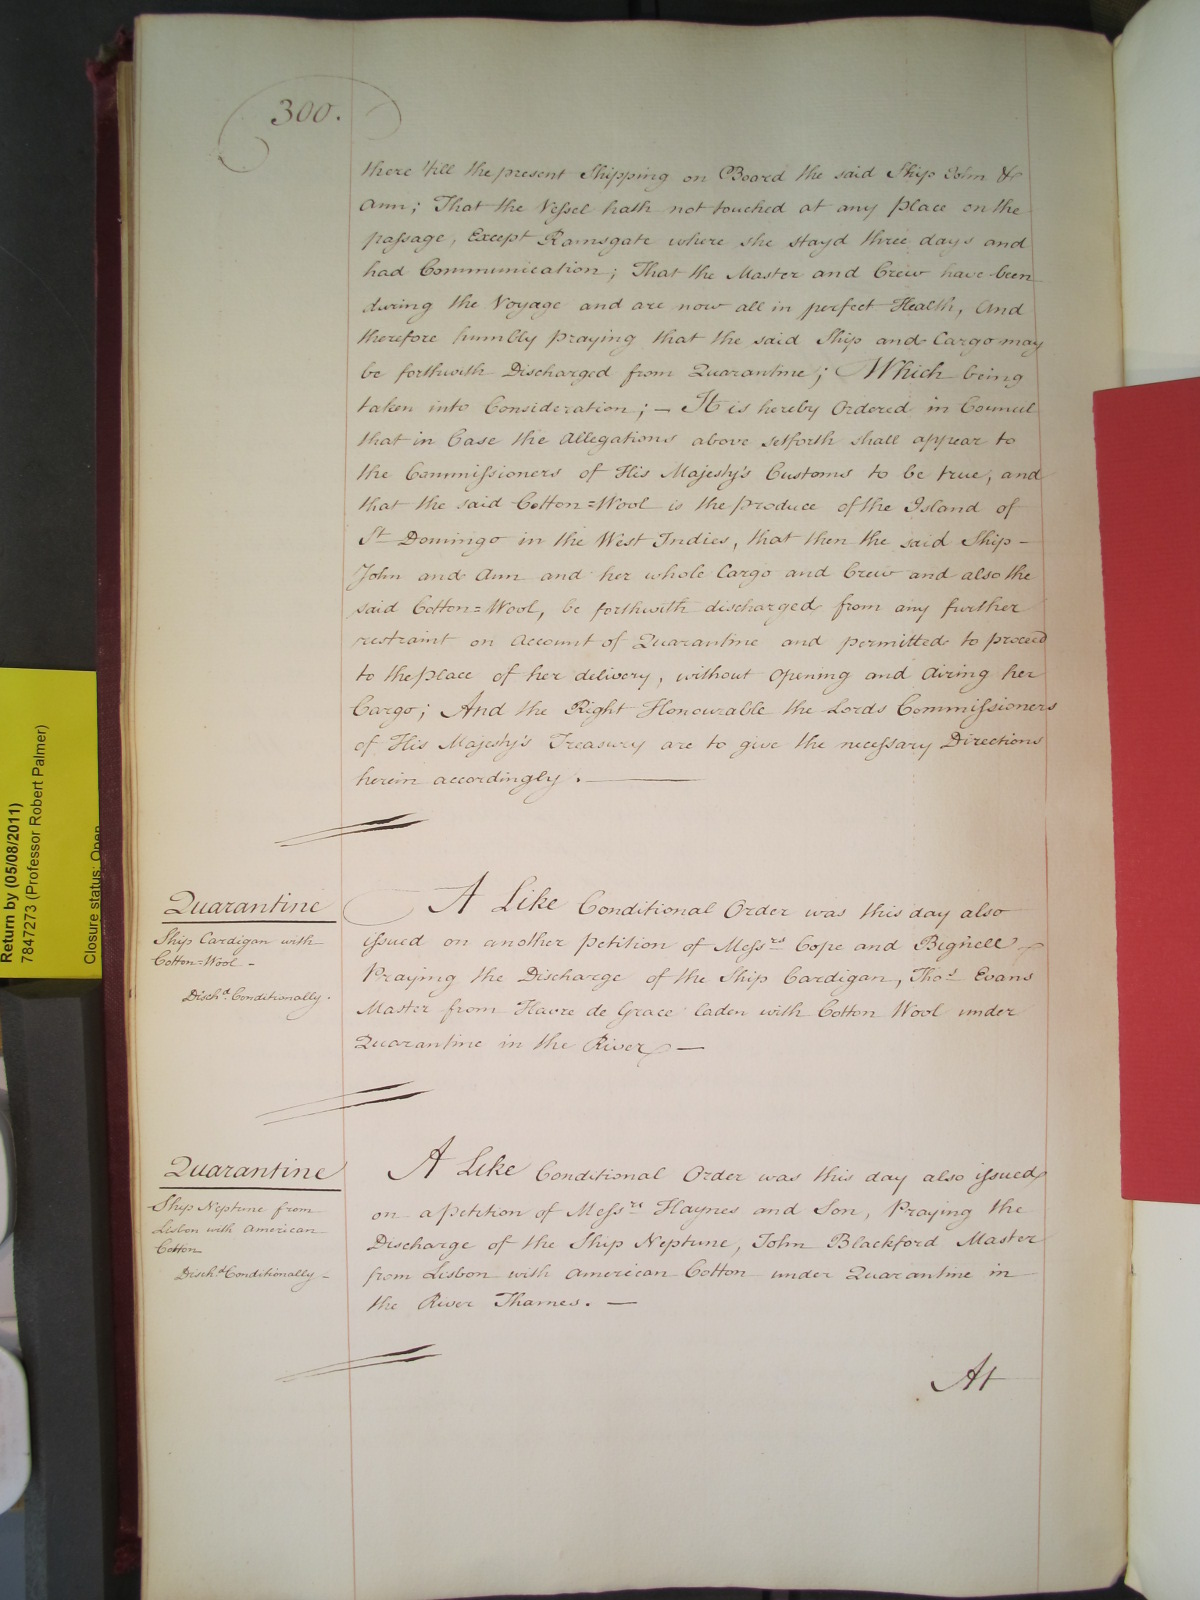 300.
there 'till the present Shipping on Board the said Ship John &
Ann; That the Vessel hath not touched at any Place on the
passage, Except Ramsgate where she stayd three days and
had Communication; That the Master and Crew have been
during the Voyage and are now all in perfect Health, And
therefore humbly praying that the said Ship and Cargo may
be forthwith Discharged from Quarantine; Which being
taken into Consideration; — It is hereby Ordered in Council
that in Case the Allegations above setforth shall appear to
the Commissioners of His Majesty's Customs to be true, and
that the said Cotton=Wool is the produce of the Island of
St Domingo in the West Indies, that then the said Ship —
John and Ann and her whole Cargo and Crew and also the
said Cotton=Wool, be forthwith discharged from any further
restraint on Account of Quarantine and permitted to proceed
to the place of her delivery, without Opening and Airing her
Cargo; And the Right Honourable the Lords Commissioners
of His Majesty's Treasury are to give the necessary Directions
herein accordingly. —
Quarantine
Ship Cardigan with
Cotton=Wool -
Dischd. Conditionally.
A Like Conditional Order was this day also
issued on another petition of Messrs Cope and Bignell
Praying the Discharge of the Ship Cardigan, Thos Evans
Master from Havre de Grace laden with Cotton Wool under
Quarantine in the River —
Quarantine
Ship Neptune from
Lisbon with American
Cotton
Dischd. Conditionally -
A Like Conditional Order was this day also issued
on a petition of Messrs Haynes and Son, Praying the
Discharge of the Ship Neptune, John Blackford Master
from Lisbon with American Cotton under Quarantine in
the River Thames. —
At
Return by (05/08/2011)
7847273 (Professor Robert Palmer)
Closure status: Open